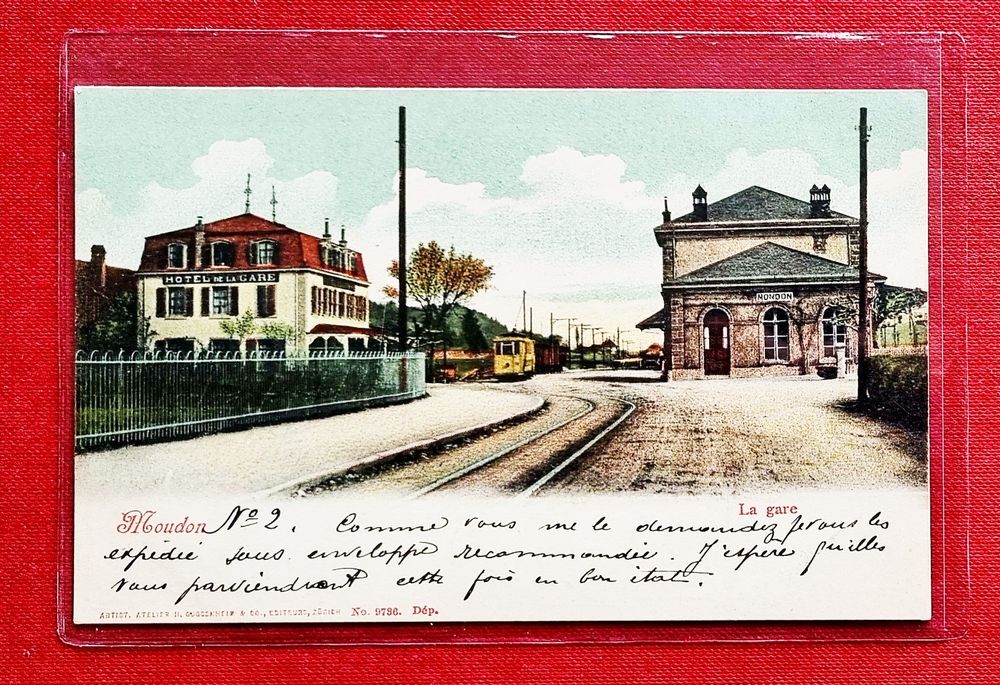 HOTEL DE LA GARE
MOUDON
La gare
Moudon No 2. Comme vous me le demandez je vous les
expédié sous enveloppe recommandée. J'espère qu'illes
vous parviendront cette fois en bon état.
ARTIST. ATELIER H. GUGGENHEIM & CO., EDITEURS, ZÜRICH No. 9736. Dép.